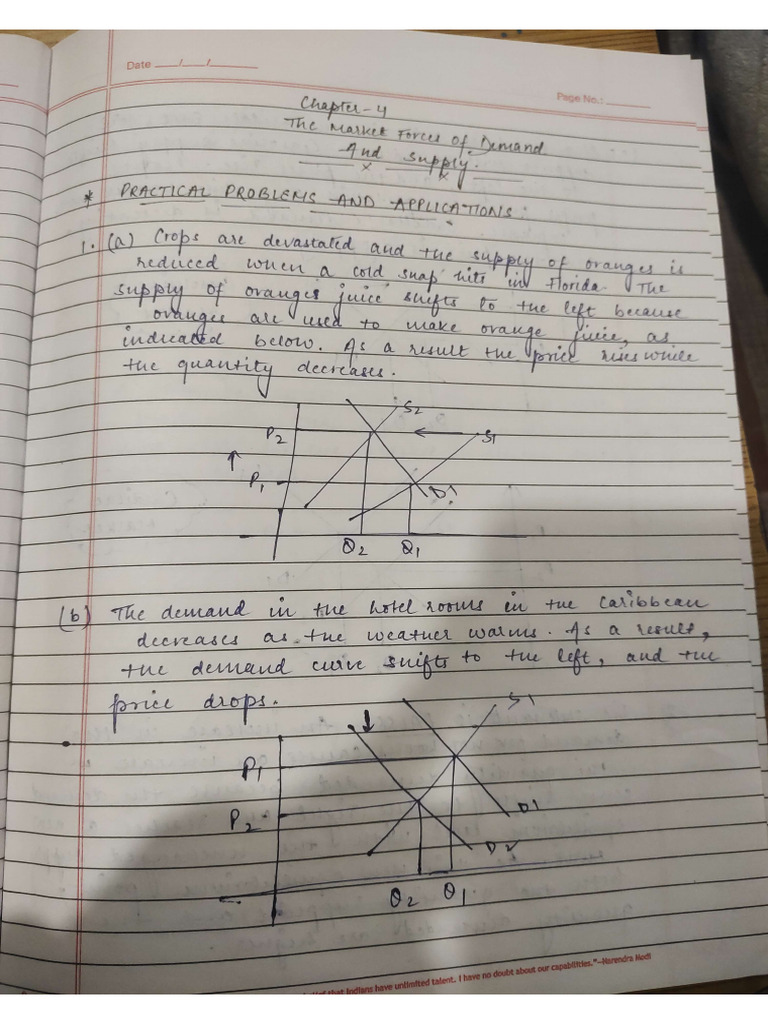 Date __/__/____
Page No.: ____
Chapter-4
The Market Forces of Demand
And Supply.
* PRACTICAL PROBLEMS AND APPLICATIONS:
1. (a) Crops are devastated and the supply of oranges is
reduced when a cold snap hits in Florida. The
supply of oranges juice shifts to the left because
oranges are used to make orange juice, as
indicated below. As a result the price rises while
the quantity decreases.
S2
P2
S1
P1
D1
Q2 Q1
(b) The demand in the hotel rooms in the Caribbean
decreases as the weather warms. As a result,
the demand curve shifts to the left, and the
price drops.
S1
P1
P2
D1
D2
Q2 Q1
that Indians have unlimited talent. I have no doubt about our capabilities."–Narendra Modi